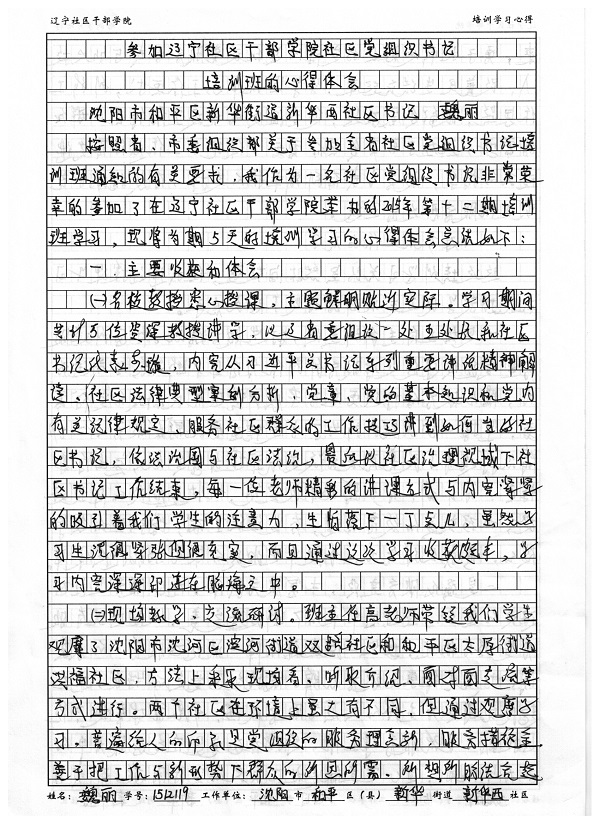 辽宁社区干部学院 培训学习心得
参加辽宁社区干部学院社区党组织书记
培训班的心得体会
沈阳市和平区新华街道新华西社区书记 魏丽
按照省、市委组织部关于参加全省社区党组织书记培
训班通知的有关要求，我作为一名社区党组织书记非常荣
幸的参加了在辽宁社区干部学院举办的2015年第十二期培训
班学习，现将为期5天的培训学习的心得体会总结如下：
一、主要收获和体会
㈠名校教授悉心授课，主题鲜明贴近实际。学习期间
共计五位资深教授讲学，以及省委组织一处王处长和社区
书记代表，内容从习近平总书记系列重要讲话精神解
读、社区法律典型案例分析、党章、党的基本知识和党内
有关纪律规定、服务社区群众的工作技巧讲到如何当好社
区书记，依法治国与社区法治，最后以社区治理视域下社
区书记工作结束，每一位老师精彩的讲课方式与内容紧紧
的吸引着我们学生的注意力，生怕落下一丁点儿，虽然学
习生活很紧张但很充实，而且通过这次学习收获颇丰，学
习内容深深印进在脑海之中。
㈡现场教学、交流研讨。班主任高老师带给我们学生
观摩了沈阳市沈河区滨河街道双社区和和平区太原街道
洪福社区，方法上采取现场看、听取介绍、面对面交流等
方式进行。两个社区在环境上虽大有不同，但通过观摩学
习。普遍给人的印象是党组织的服务理念新，服务措施全，
善于把工作与新形势下群众的所思所需、所想所盼结合起
姓名：魏丽 学号：1512119 工作单位：沈阳 市 和平 区（县） 新华 街道 新华西 社区